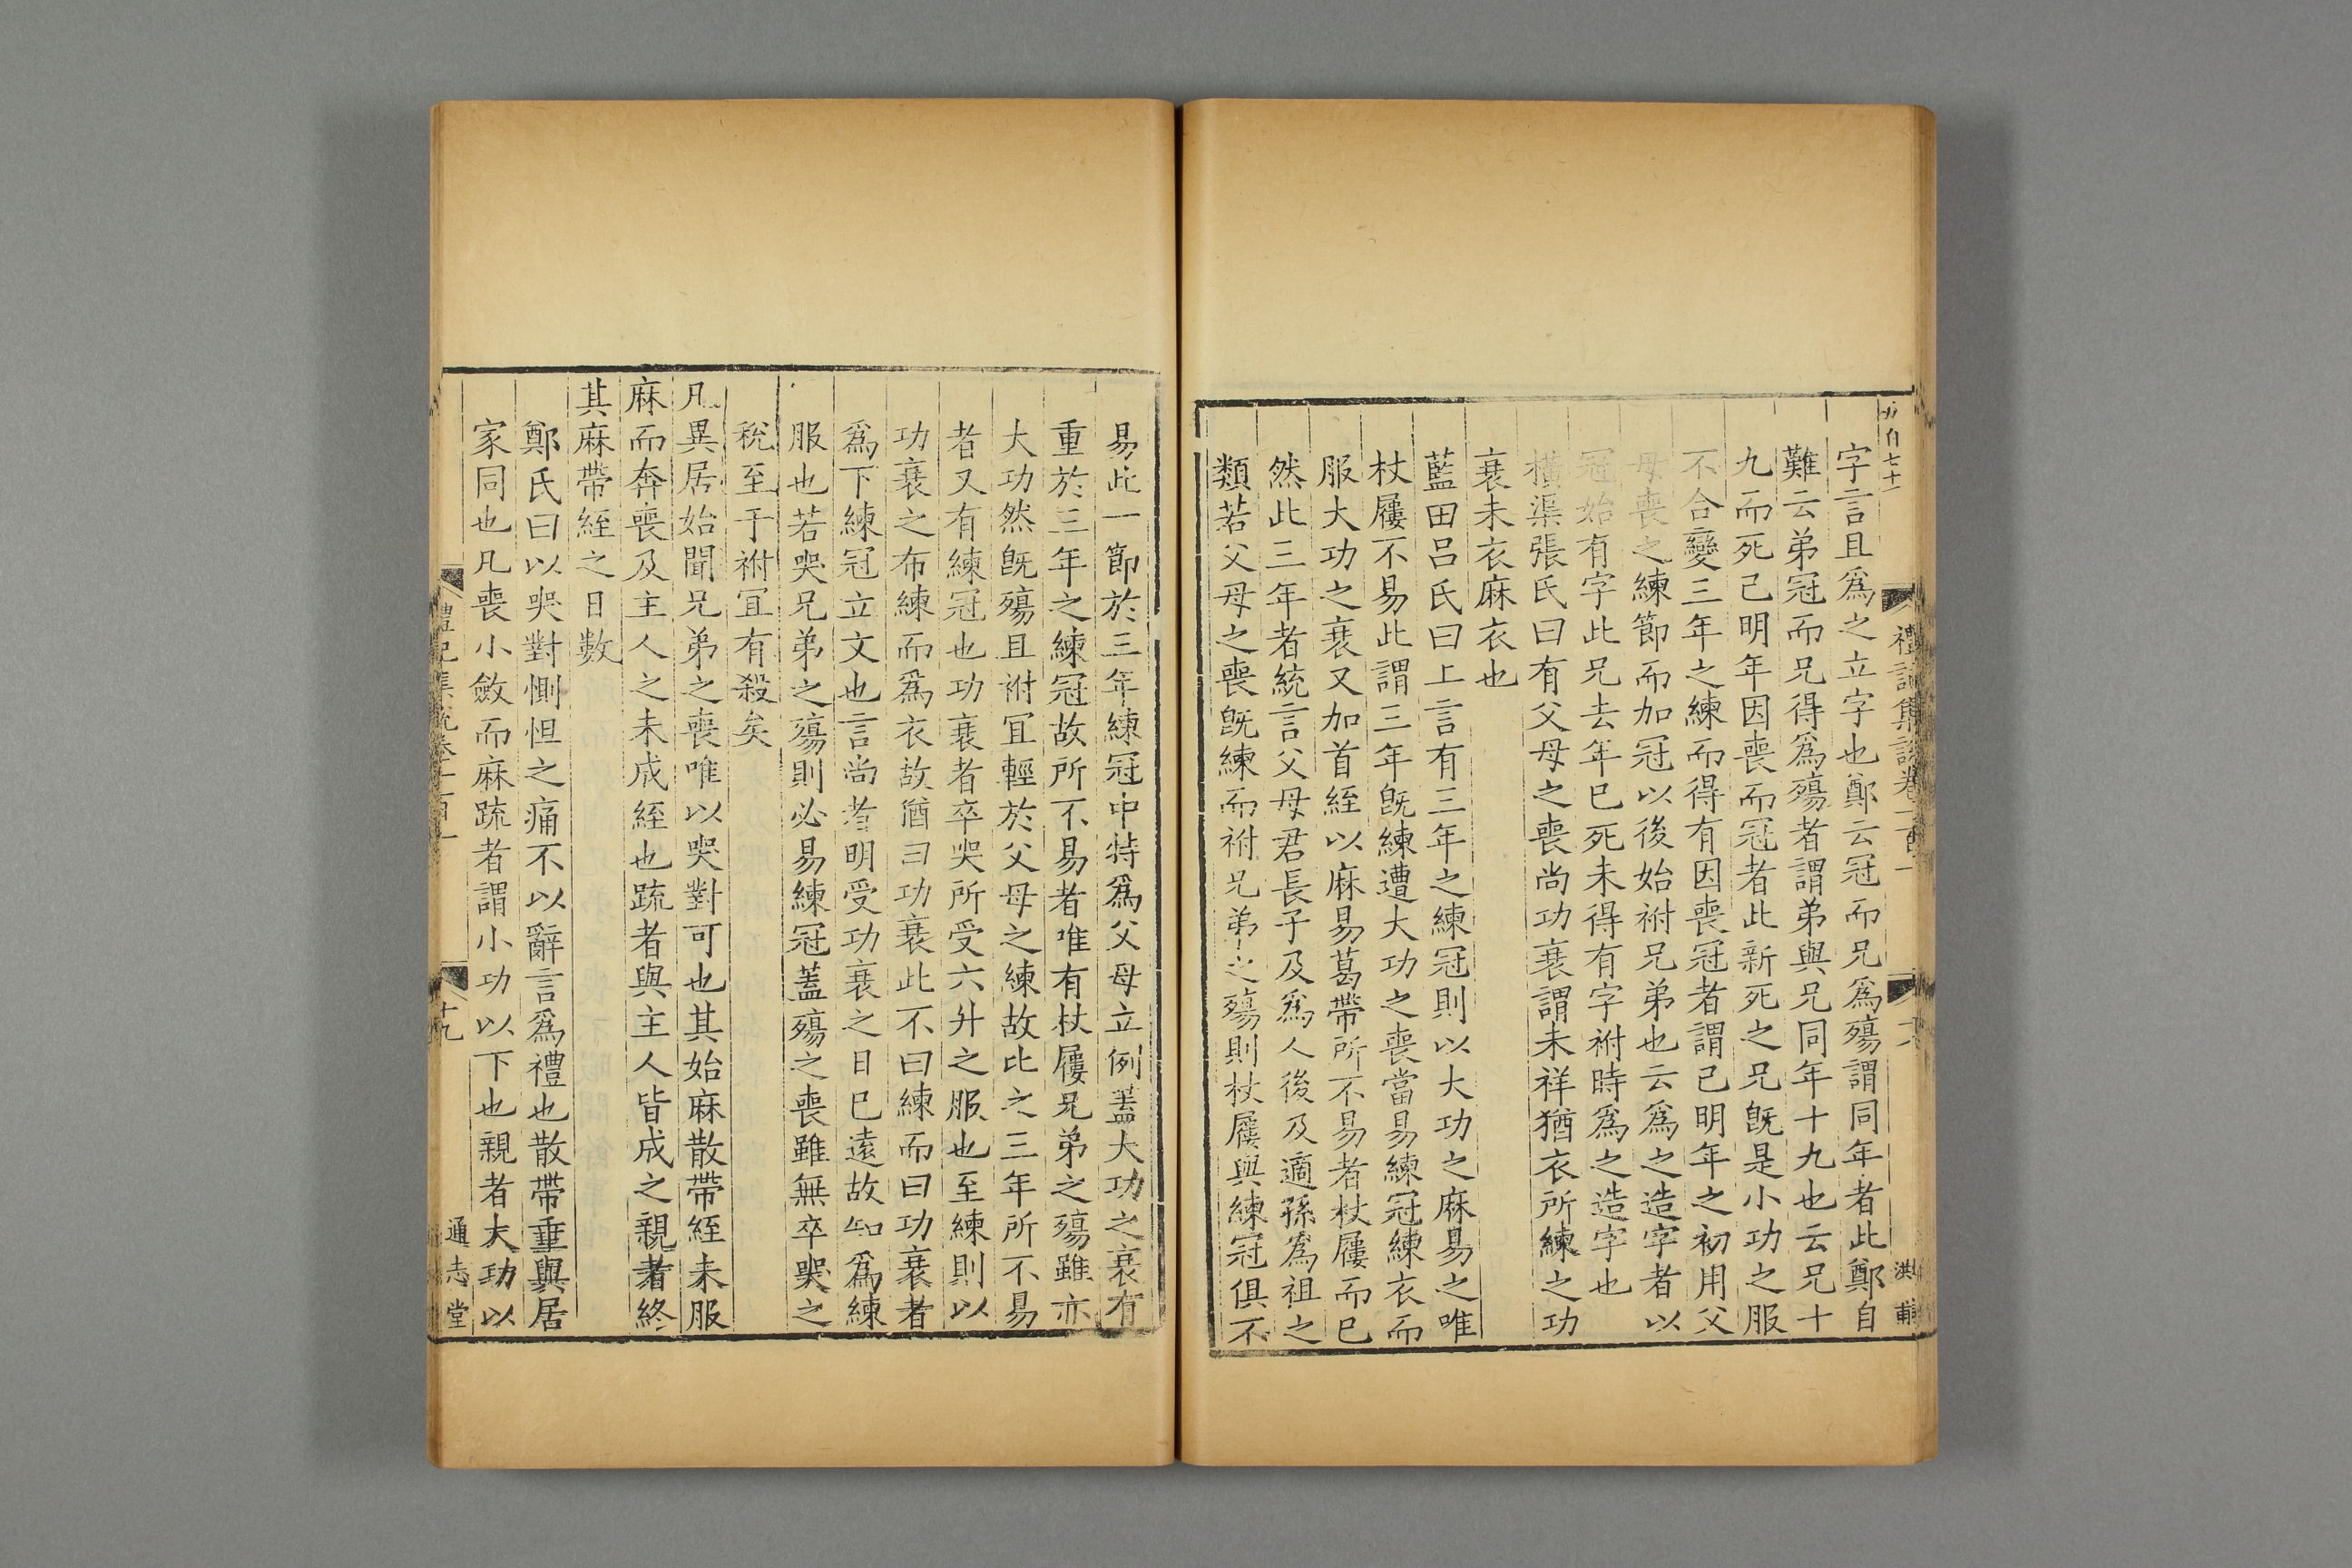 字言且爲之立字也鄭云冠而兄爲殤謂同年者此鄭自
難云弟冠而兄得爲殤者謂弟與兄同年十九也云兄十
九而死己明年因喪而冠者此新死之兄旣是小功之服
不合變三年之練而得有因喪冠者謂己明年之初用父
母喪之練節而加冠以後始祔兄弟也云爲之造字者以
冠始有字此兄去年已死未得有字祔時爲之造字也
橫渠張氏曰有父母之喪尚功衰謂未祥猶衣所練之功
衰未衣麻衣也
藍田呂氏曰上言有三年之練冠則以大功之麻易之唯
杖屨不易此謂三年旣練遭大功之喪當易練冠練衣而
服大功之衰又加首絰以麻易葛帶所不易者杖屨而已
然此三年者統言父母君長子及爲人後及適孫爲祖之
類若父母之喪旣練而祔兄弟之殤則杖屨與練冠俱不
禮記集說卷一百一
洪 甫
易此一節於三年練冠中特爲父母立例蓋大功之衰有
重於三年之練冠故所不易者唯有杖屨兄弟之殤雖亦
大功然旣殤且祔冝輕於父母之練故比之三年所不易
者又有練冠也功衰者卒哭所受六升之服也至練則以
功衰之布練而爲衣故猶曰功衰此不曰練而曰功衰者
爲下練冠立文也言尚者明受功衰之日已遠故知爲練
服也若哭兄弟之殤則必易練冠蓋殤之喪雖無卒哭之
稅至于祔冝有殺矣
凡異居始聞兄弟之喪唯以哭對可也其始麻散帶絰未服
麻而奔喪及主人之未成絰也疏者與主人皆成之親者終
其麻帶絰之日數
鄭氏曰以哭對惻怛之痛不以辭言爲禮也散帶垂與居
家同也凡喪小斂而麻疏者謂小功以下也親者大功以
禮記集說卷一百一
十九
通志堂